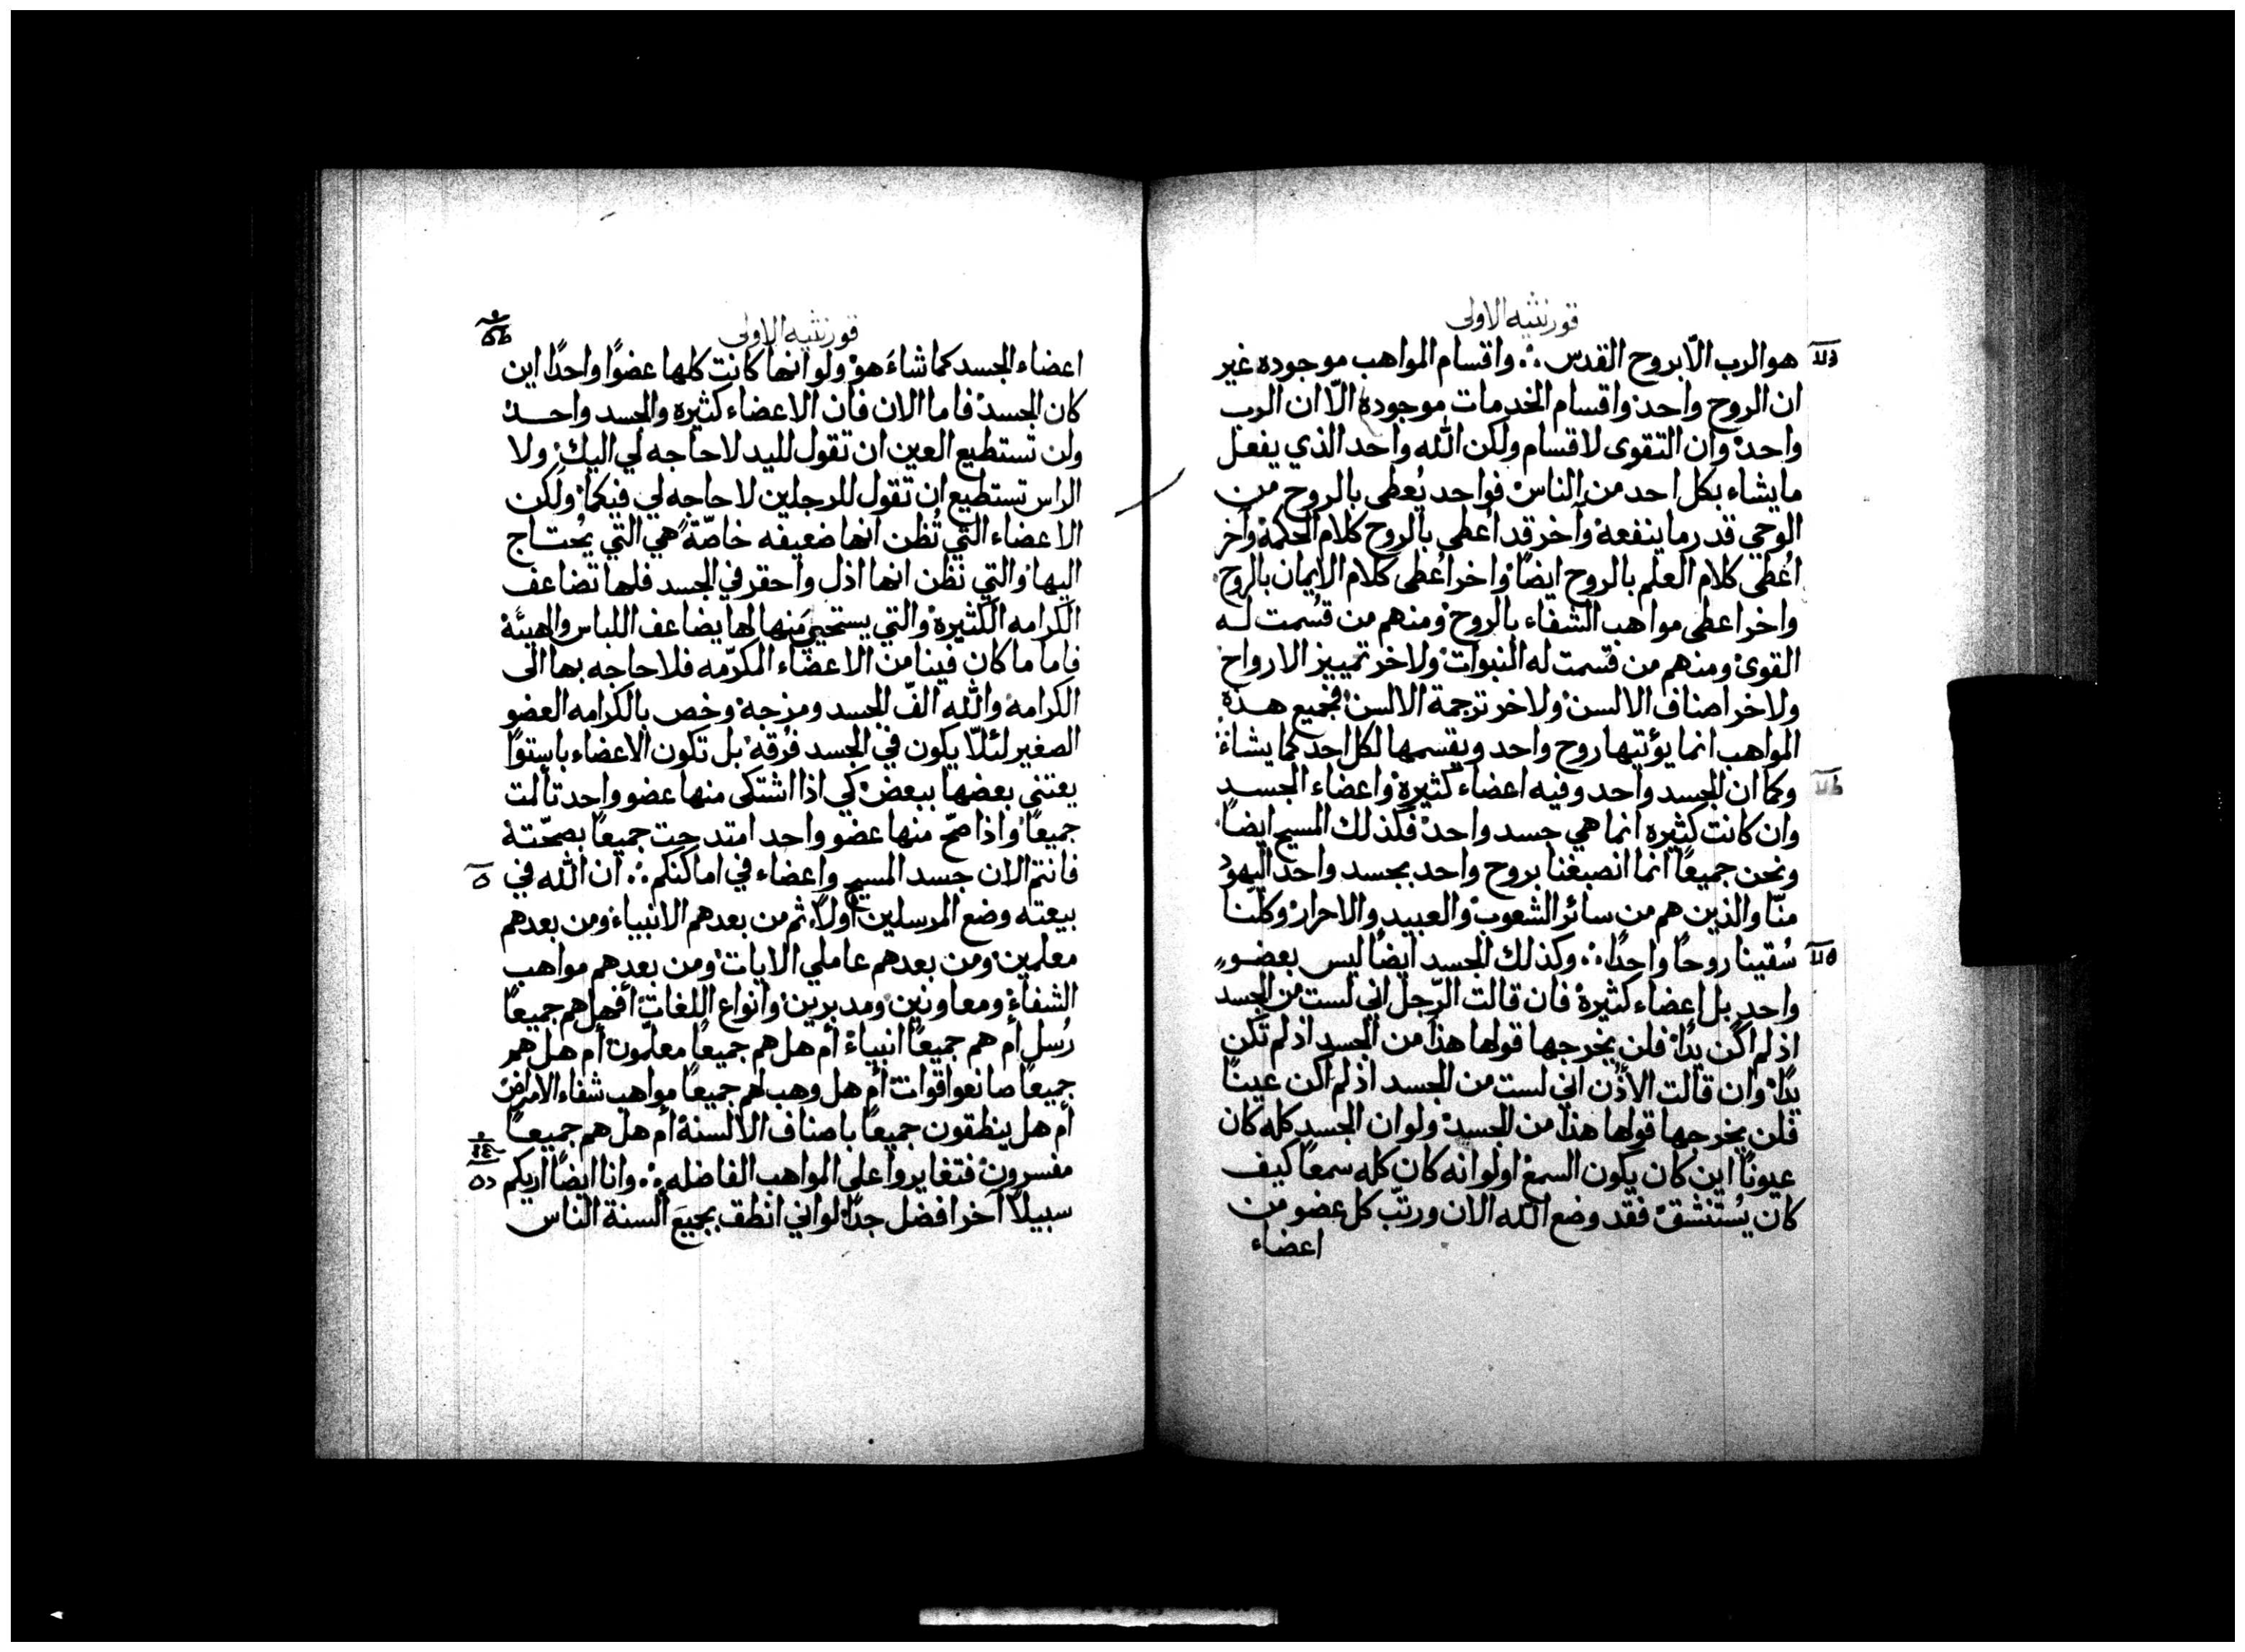 قورنثيه الاولى
هو الرب الّا بروح القدس ؞ واقسام المواهب موجوده غير
ان الروح واحد واقسام الخدمات موجودة الّا ان الرب
واحد وان التقوى لاقسام ولكن الله واحد الذي يفعل
ما يشاء بكل احد من الناس فواحد يُعطى بالروح من
الوحي قدر ما ينفعه وآخر قد اُعطى بالروح كلام الحكمة وآخر
اُعطى كلام العلم بالروح ايضًا واخر اُعطى كلام الايمان بالروح
واخر اعطى مواهب الشفاء بالروح ومنهم من قُسمت له
القوى ومنهم من قسمت له النبوات ولاخر تمييز الارواح
ولاخر اصناف الالسن ولاخر ترجمة الالسن فجميع هذه
المواهب انما يؤتيها روح واحد ويقسمها لكل احد كما يشاء
وكما ان الجسد واحد وفيه اعضاء كثيرة واعضاء الجسد
وان كانت كثيره انما هي جسد واحد فكذلك المسيح ايضًا
ونحن جميعًا انما انصبغنا بروح واحد بجسد واحد اليهود
منّا والذين هم من سائر الشعوب والعبيد والاحرار وكلّنا
سُقينا روحًا واحدًا ؞ وكذلك الجسد ايضًا ليس بعضوٍ
واحدٍ بل اعضاء كثيرة فان قالت الرّجل اني لست من الجسد
اذ لم اكن يدًا فلن يخرجها قولها هذا من الجسد اذ لم تكن
يدًا وان قالت الأذن اني لست من الجسد اذ لم اكن عينًا
فلن يخرجها قولها هذا من الجسد ولو ان الجسد كله كان
عيونًا اين كان يكون السمع او لو انه كان كله سمعًا كيف
كان يُستنشق فقد وضع الله الان ورتّب كل عضو من
اعضاء
قورنثيه الاولى
اعضاء الجسد كما شاءَ هو ولو انها كانت كلها عضوًا واحدًا اين
كان الجسد فاما الان فان الاعضاء كثيره والجسد واحد
ولن تستطيع العين ان تقول لليد لا حاجه لي اليك ولا
الراس تستطيع ان تقول للرجلين لا حاجه لي فيكما ولكن
الاعضاء التي تُظن انها ضعيفه خاصّةً هي التي يُحتاج
اليها والتي نظن انها اذل واحقر في الجسد فلها تضاعف
الكرامه الكثيرة والتي يستحيي منها لها يضاعف اللباس والهيئة
فاما ما كان فينا من الاعضاء المكرّمه فلا حاجه بها الى
الكرامه والله الّف الجسد ومزجه وخص بالكرامه العضو
الصغير لئلّا يكون في الجسد فُرقه بل تكون الاعضاء باستوًا
يعتني بعضها ببعض كي اذا اشتكى منها عضو واحد تألمت
جميعًا واذا صحّ منها عضو واحد امتدحت جميعًا بصحّته
فانتم الان جسد المسيح واعضاء في اماكنكم ؞ ان الله في
بيعته وضع المرسلين اولًا ثم من بعدهم الانبياء ومن بعدهم
معلمين ومن بعدهم عاملي الايات ومن بعدهم مواهب
الشفاء ومعاونين ومدبرين وانواع اللغات أفهل هم جميعًا
رُسل أم هم جميعًا انبياء أم هل هم جميعًا معلّمون أم هل هم
جميعًا صانعوا قوات أم هل وهب لهم جميعًا مواهب شفاء الامراض
أم هل ينطقون جميعًا باصناف الالسنة أم هل هم جميعًا
مفسرون فتغايروا على المواهب الفاضله ؞ وانا ايضًا اريكم
سبيلًا آخر افضل جدًا لو اني انطق بجميع ألسنة الناس